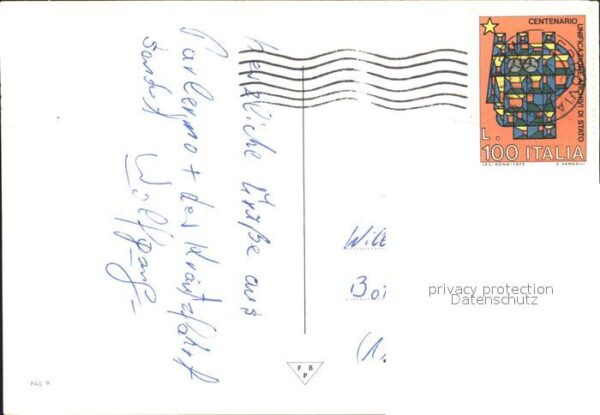 Herzliche Grüße aus
Parlermo + der Kreuzfahrt
sendet
Wolfgang
CENTENARIO
UNIFICAZIONE ARCHIVI DI STATO
L.
100 ITALIA
I.P.S.-ROMA-1975 E. VANGELLI
Wil
Bo
(1.
privacy protection
Datenschutz
F B
P
PAL 9